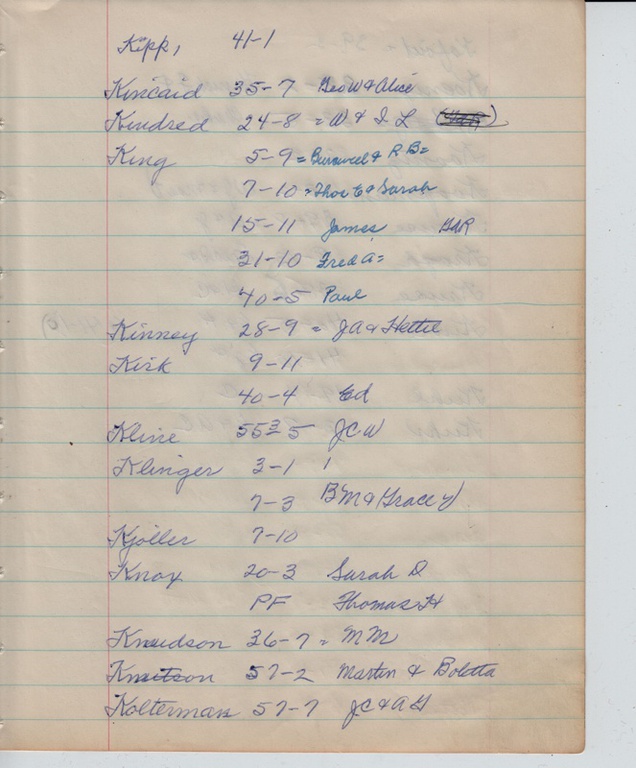 Kipp, 41-1
Kincaid 35-7 Geo W & Alice
Kindred 24-8 = W & I L
King 5-9 = Burwell & R B =
7-10 = Thos E & Sarah
15-11 James GAR
31-10 Fred A =
40-5 Paul
Kinney 28-9 = JA & Hettie
Kirk 9-11
40-4 Ed
Kline 55-5 JCW
Klinger 3-1
7-3 BM & (Grace Y)
Kjoller 7-10
Knox 20-3 Sarah D
PF Thomas H
Knudson 36-7 = MM
Knutson 57-2 Martin & Boletta
Kolterman 57-7 JC & A G